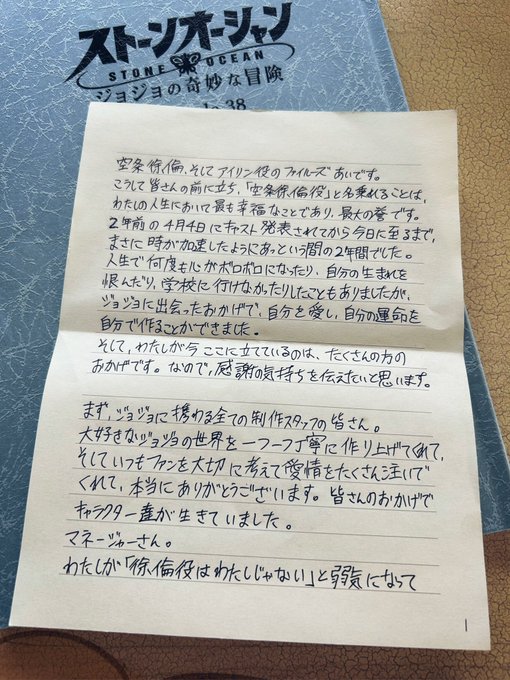 ストーンオーシャン
STONE OCEAN
ジョジョの奇妙な冒険
38
空条徐倫、そしてアイリン役のファイルーズあいです。
こうして皆さんの前に立ち、「空条徐倫役」と名乗れることは、
わたしの人生において最も幸福なことであり、最大の誉です。
2年前の4月4日にキャスト発表されてから今日に至るまで、
まさに時が加速したようにあっという間の2年間でした。
人生で何度も心がボロボロになったり、自分の生まれを
恨んだり、学校に行けなかったりしたこともありましたが、
ジョジョに出会ったおかげで、自分を愛し、自分の運命を
自分で作ることができました。
そして、わたしが今ここに立てているのは、たくさんの方の
おかげです。なので、感謝の気持ちを伝えたいと思います。
まず、ジョジョに携わる全ての制作スタッフの皆さん。
大好きなジョジョの世界を一つ一つ丁寧に作り上げてくれて、
そしていつもファンを大切に考えて愛情をたくさん注いで
くれて、本当にありがとうございます。皆さんのおかげで
キャラクター達が生きていました。
マネージャーさん。
わたしが「徐倫役はわたしじゃない」と弱気になって
1